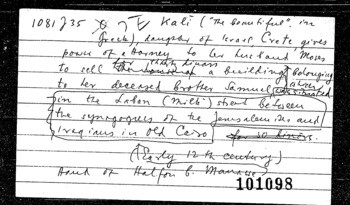 1081 J35 Kali ("the beautiful", in
Greek), daughter of Israel Crete gives
power of attorney to her husband Moses
to sell a building belonging
to her deceased brother Samuel, situated
in the Laban ("Milk") street between
the synagogues of the Jerusalemites and
Iraqians in Old Cairo for 50 dinars.
(Early 12th century)
Hand of Halfon b. Manasse
101098